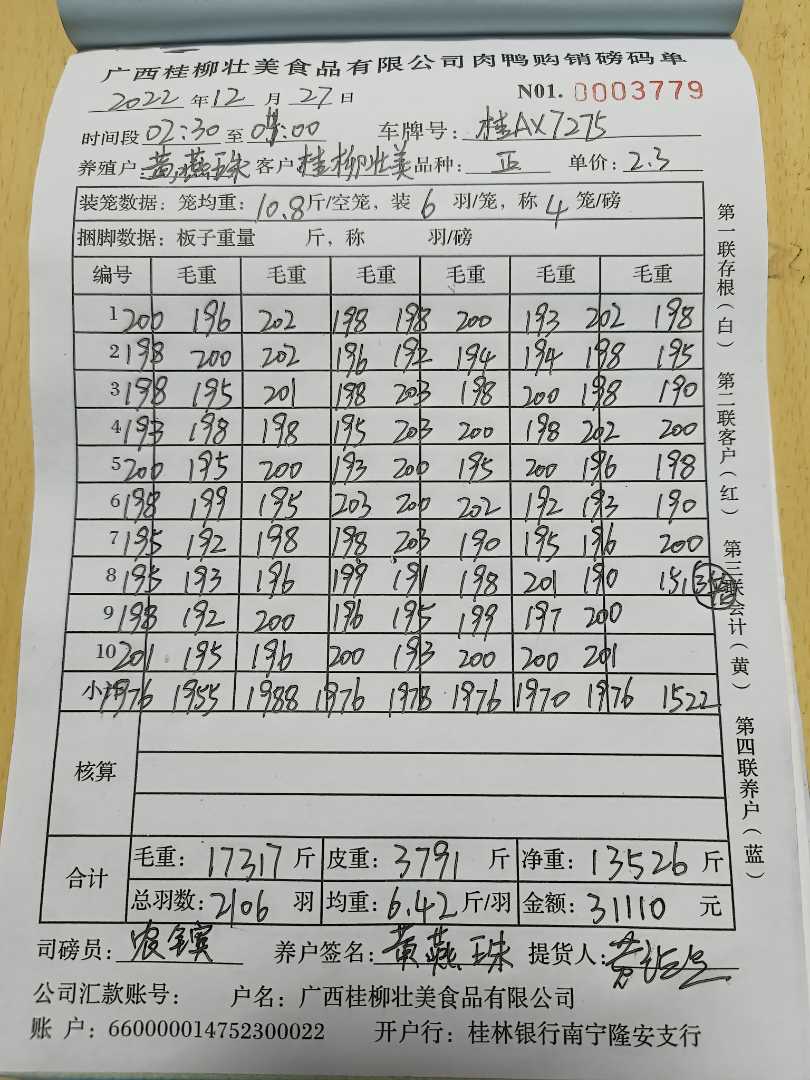 广西桂柳壮美食品有限公司肉鸭购销磅码单
2022 年 12 月 27 日 N01. 0003779
时间段 02:30 至 04:00 车牌号: 桂AX7275
养殖户: 黄燕珠 客户 桂柳壮美 品种: 正 单价: 2.3
装笼数据: 笼均重: 10.8 斤/空笼, 装 6 羽/笼, 称 4 笼/磅
捆脚数据: 板子重量 斤, 称 羽/磅
编号 毛重 毛重 毛重 毛重 毛重 毛重
1 200 196 202 198 198 200 193 202 198
2 198 200 202 196 192 194 194 198 195
3 198 195 201 198 203 198 200 198 190
4 193 198 198 195 203 200 198 202 200
5 200 195 200 193 200 195 200 196 198
6 198 199 195 203 200 202 192 193 190
7 195 192 198 198 203 190 195 196 200
8 195 193 196 199 191 198 201 190 151
9 198 192 200 196 195 199 197 200
10 201 195 196 200 193 200 200 201
小计 1976 1955 1988 1976 1978 1976 1970 1976 1522
核算
合计 毛重: 17317 斤 皮重: 3791 斤 净重: 13526 斤
总羽数: 2106 羽 均重: 6.42 斤/羽 金额: 31110 元
司磅员: 养户签名: 黄燕珠 提货人:
公司汇款账号: 户名: 广西桂柳壮美食品有限公司
账 户: 660000014752300022 开户行: 桂林银行南宁隆安支行
第一联存根(白) 第二联客户(红) 第三联会计(黄) 第四联养户(蓝)